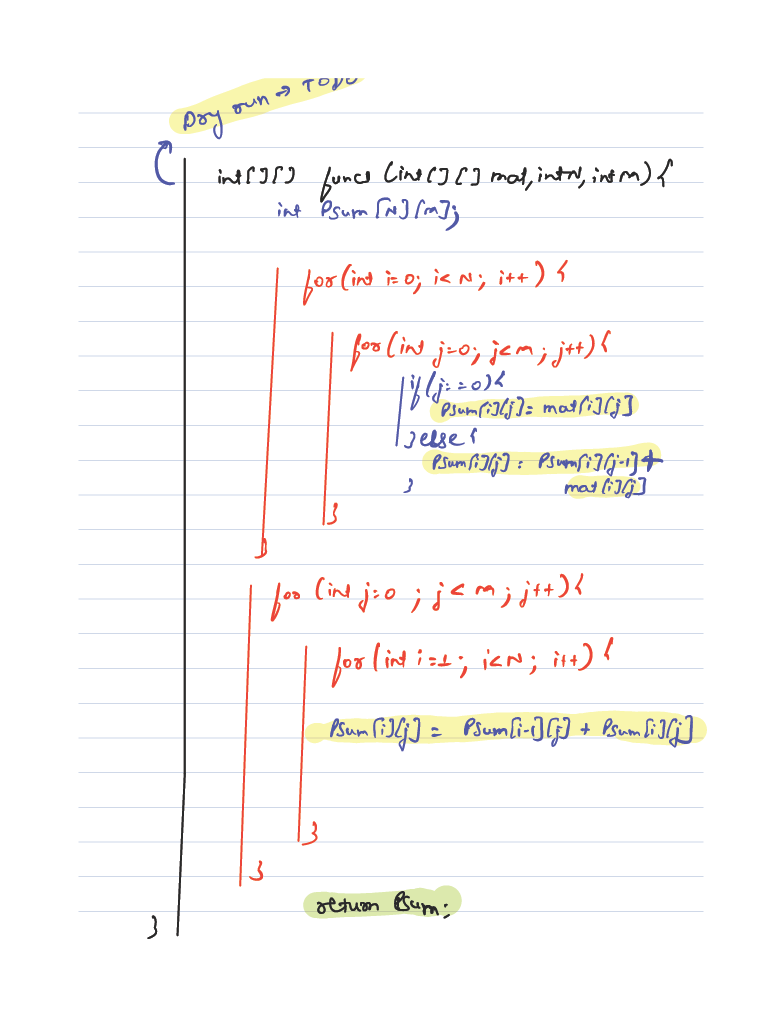 Dry run → TODO
int[][] funcs (int[][] mat, int N, int M) {
int Psum [N][M];
for (int i=0; i< N; i++) {
for (int j=0; j<m; j++) {
if (j==0) {
Psum[i][j]= mat[i][j]
} else {
Psum[i][j] = Psum[i][j-1] +
} mat[i][j]
}
}
for (int j=0 ; j < m ; j++) {
for (int i=1; i<N; i++) {
Psum[i][j] = Psum[i-1][j] + Psum[i][j]
}
}
return Psum;
}